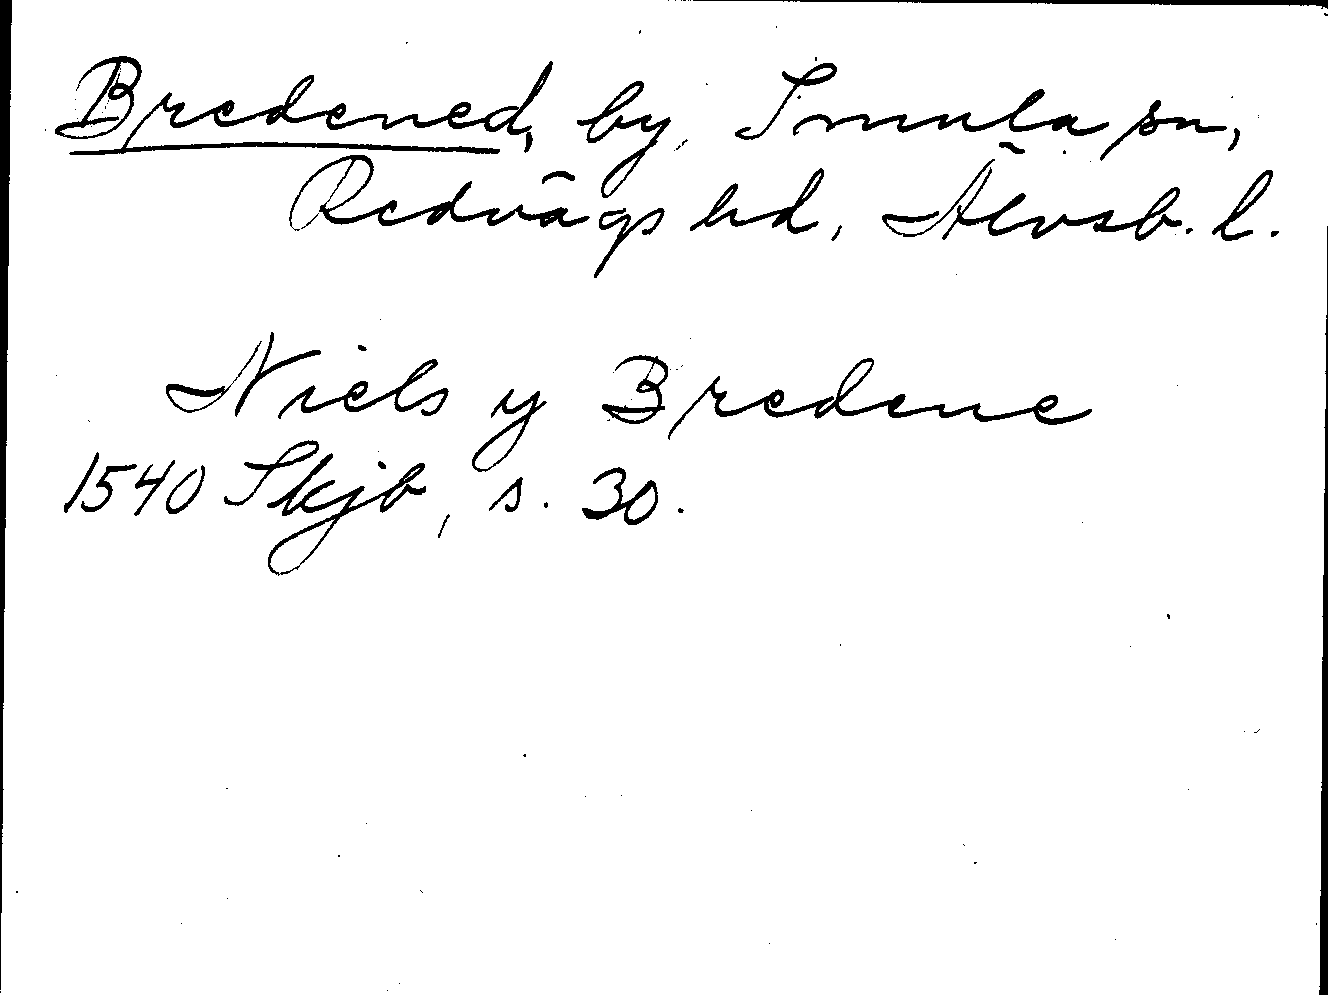 Bredened, by, Smula sn,
Redvägs hd, Älvsb. l.
Niels y Bredene
1540 Skjb, s. 30.